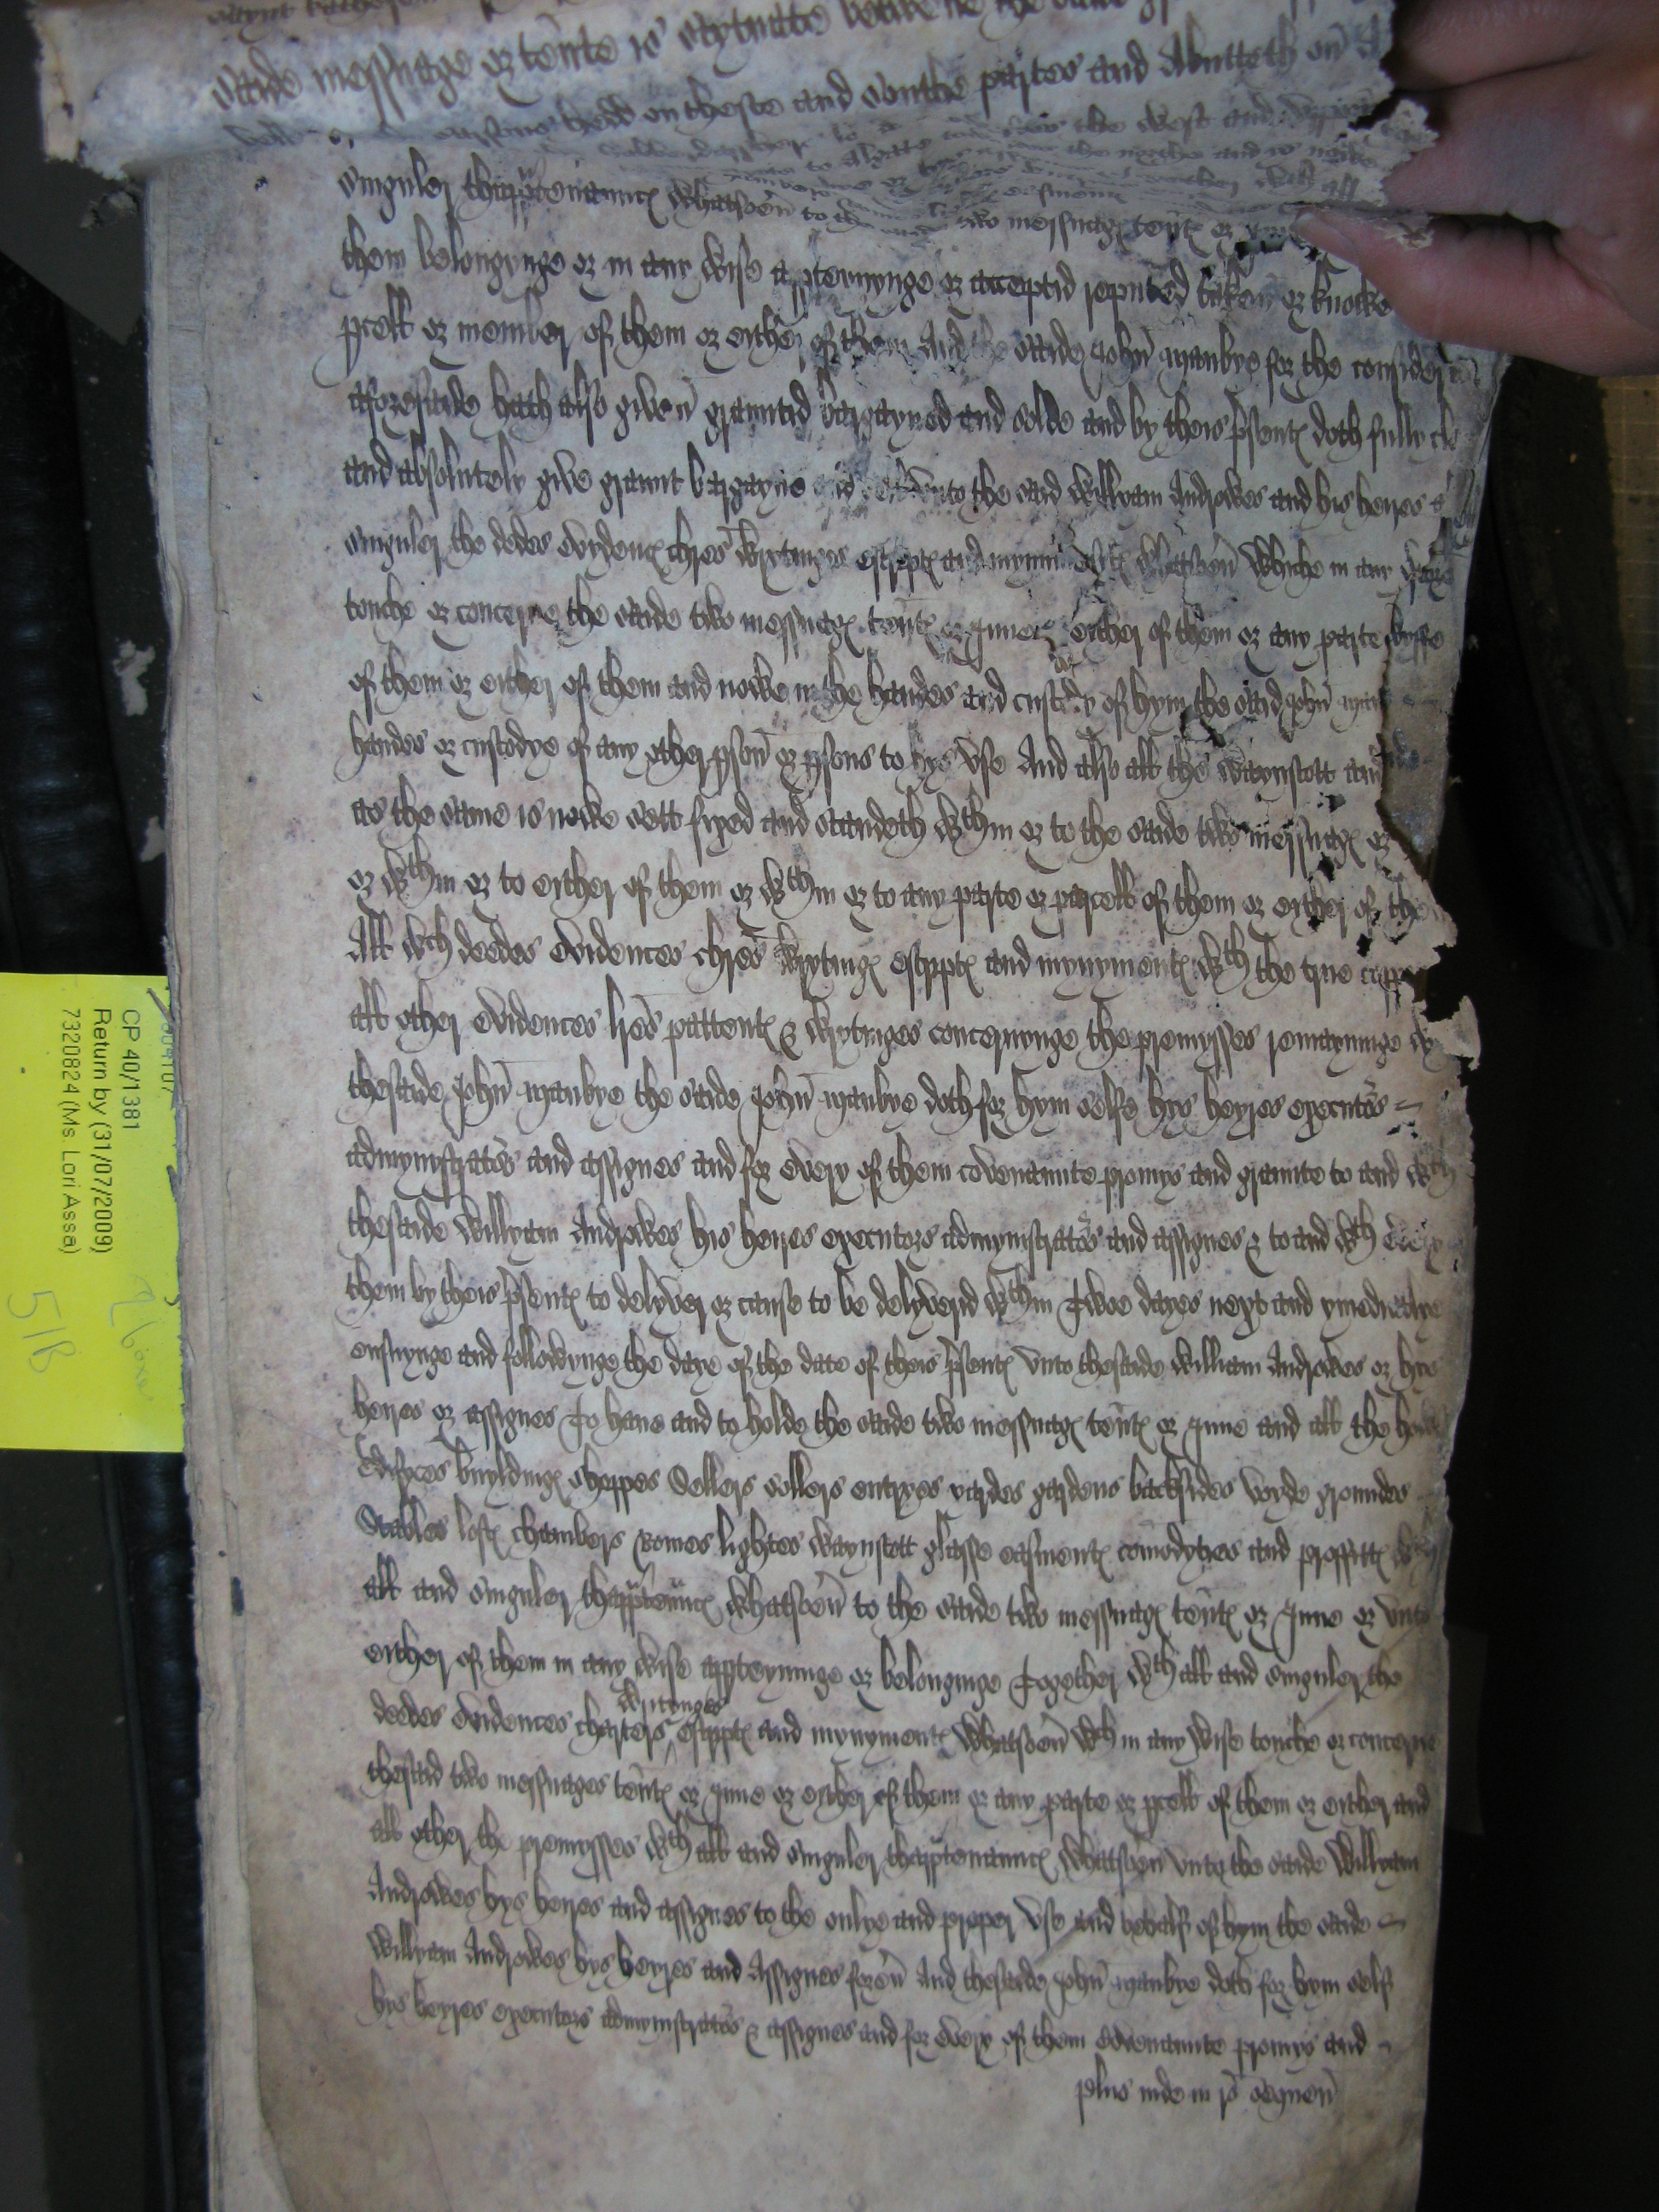 saide messuage or tente is scytuatte
hedd on theste and southe partes and Abutteth on
singuler thapptenaunc whatsoeu to two messuag tent or
them belongynge or in any wise appteynynge or acceptid reputed taken or knowe
pcell or member of them or either of them And the saide John Manbye for the consider
aforesaide hath also given grauntid bargayned and solde and by theis psent doth fully cle
and absolutely give graunt bargayne unto the said Willyam Androwes and his heires
singuler the dedes evydenc chres wrytinges escript and mynument whatsoeu whiche in any wise
touche or concerne the saide two messuag tent or Inne or either of them or any parte
of them or either of them and nowe in the handes and custody of hym the said John Man
handes or custodye of any other pson or psons to hys use And also all the waynscott and
as the same is nowe sett fixed and standeth wthin or to the saide two messuag or
or wthin or to either of them or wthin or to any parte or parcell of them or either of the
All wch deedes evidences chres wryting escript and mynyment wth the true coppe
all other evidences lres pattent & wrytinges concernynge the premysses remayninge w
thesaide John Manbye the saide John Manbye doth for hym selfe hys heyres executos
admynistratos and assignes and for every of them covenaunte promys and graunte to and wth
thesaide Willyam Androwes his heires executors admynistratos and assignes & to and wth every
them by theis psent to delyver or cause to be delyverid wthin Twoe dayes next and ymediatlye
ensuynge and followynge the daye of the date of theis psent unto thesaide William Androwes or hys
heires or assignes To have and to holde the saide two messuag tent or Inne and all the
Edifyces buylding shoppes Sellers sollers entryes yardes gardens backsides voyde groundes
Stables loft chambers romes lightes waynscott glasse easment comodyties and proffitt wth
all and singuler thapptennc whatsoeu to the saide two messuag tent or Inne or unto
either of them in any wise appteyninge or belonginge Together wth all and singuler the
deedes evidences charters writinges escript and mynyment whatsoeu wch in any wise touche or concerne
thesaid two messuages tent or Inne or either of them or any parte or pcell of them or either and
all other the premysses wth all and singuler thapptenaunc whatsoeu unto the saide Willyam
Androwes hys heires and assignes to the onlye and proper use and behalf of hym the saide
Willyam Androwes hys heyres and Assignes foreu And thesaide John Manbye doth for hym self
hys heyres executors admynistratos & assignes and for every of them covenaunte promys and
plus inde in ro sequen
CP 40/1381
Return by (31/07/2009)
7320824 (Ms. Lori Assa)
51B